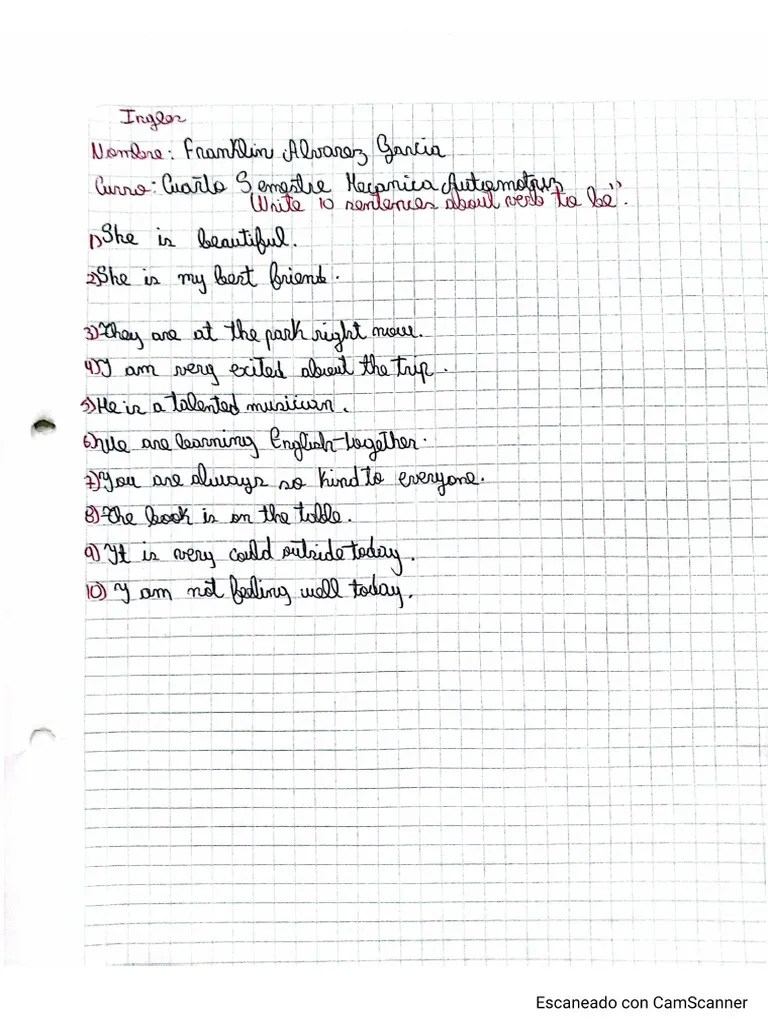 Ingles
Nombre: Franklin Alvarez Garcia
Curso: Cuarto Semestre Mecanica Automotriz
Write 10 sentences about verb to be".
1) She is beautiful.
2) She is my best friend.
3) They are at the park right now.
4) I am very exited about the trip.
5) He is a talented musician.
6) We are learning English together.
7) You are always so kind to everyone.
8) The book is on the table.
9) It is very could outside today.
10) I am not feeling well today.
Escaneado con CamScanner